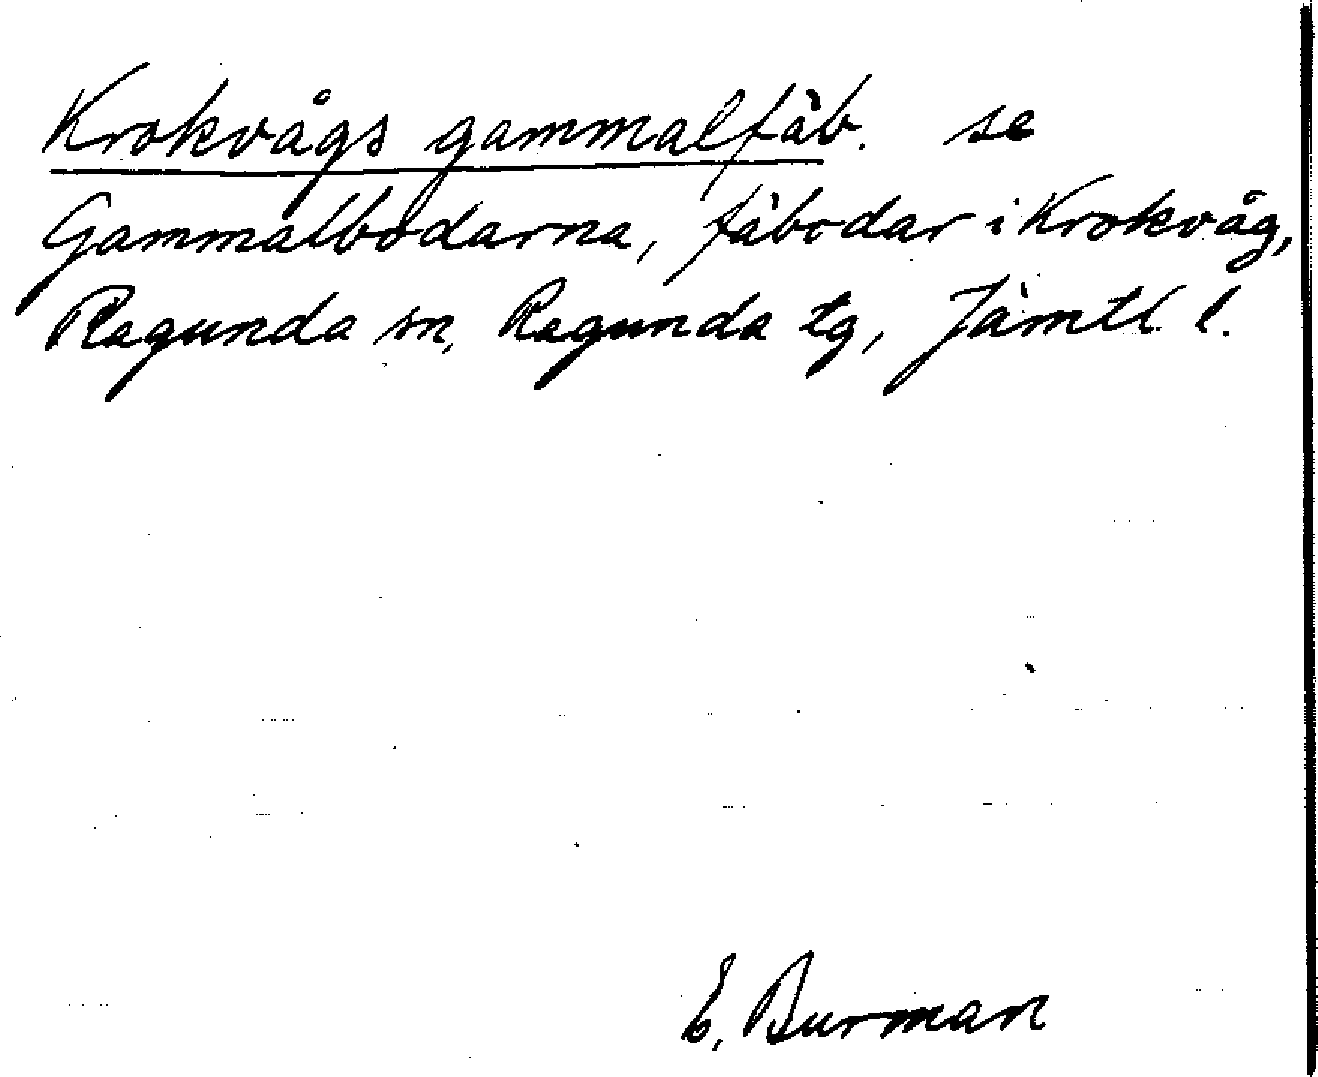 Krokvågs gammalfäb. se
Gammalbodarna, fäbodar i Krokvåg,
Ragunda sn, Ragunda tg, Jämtl. l.
E. Burman